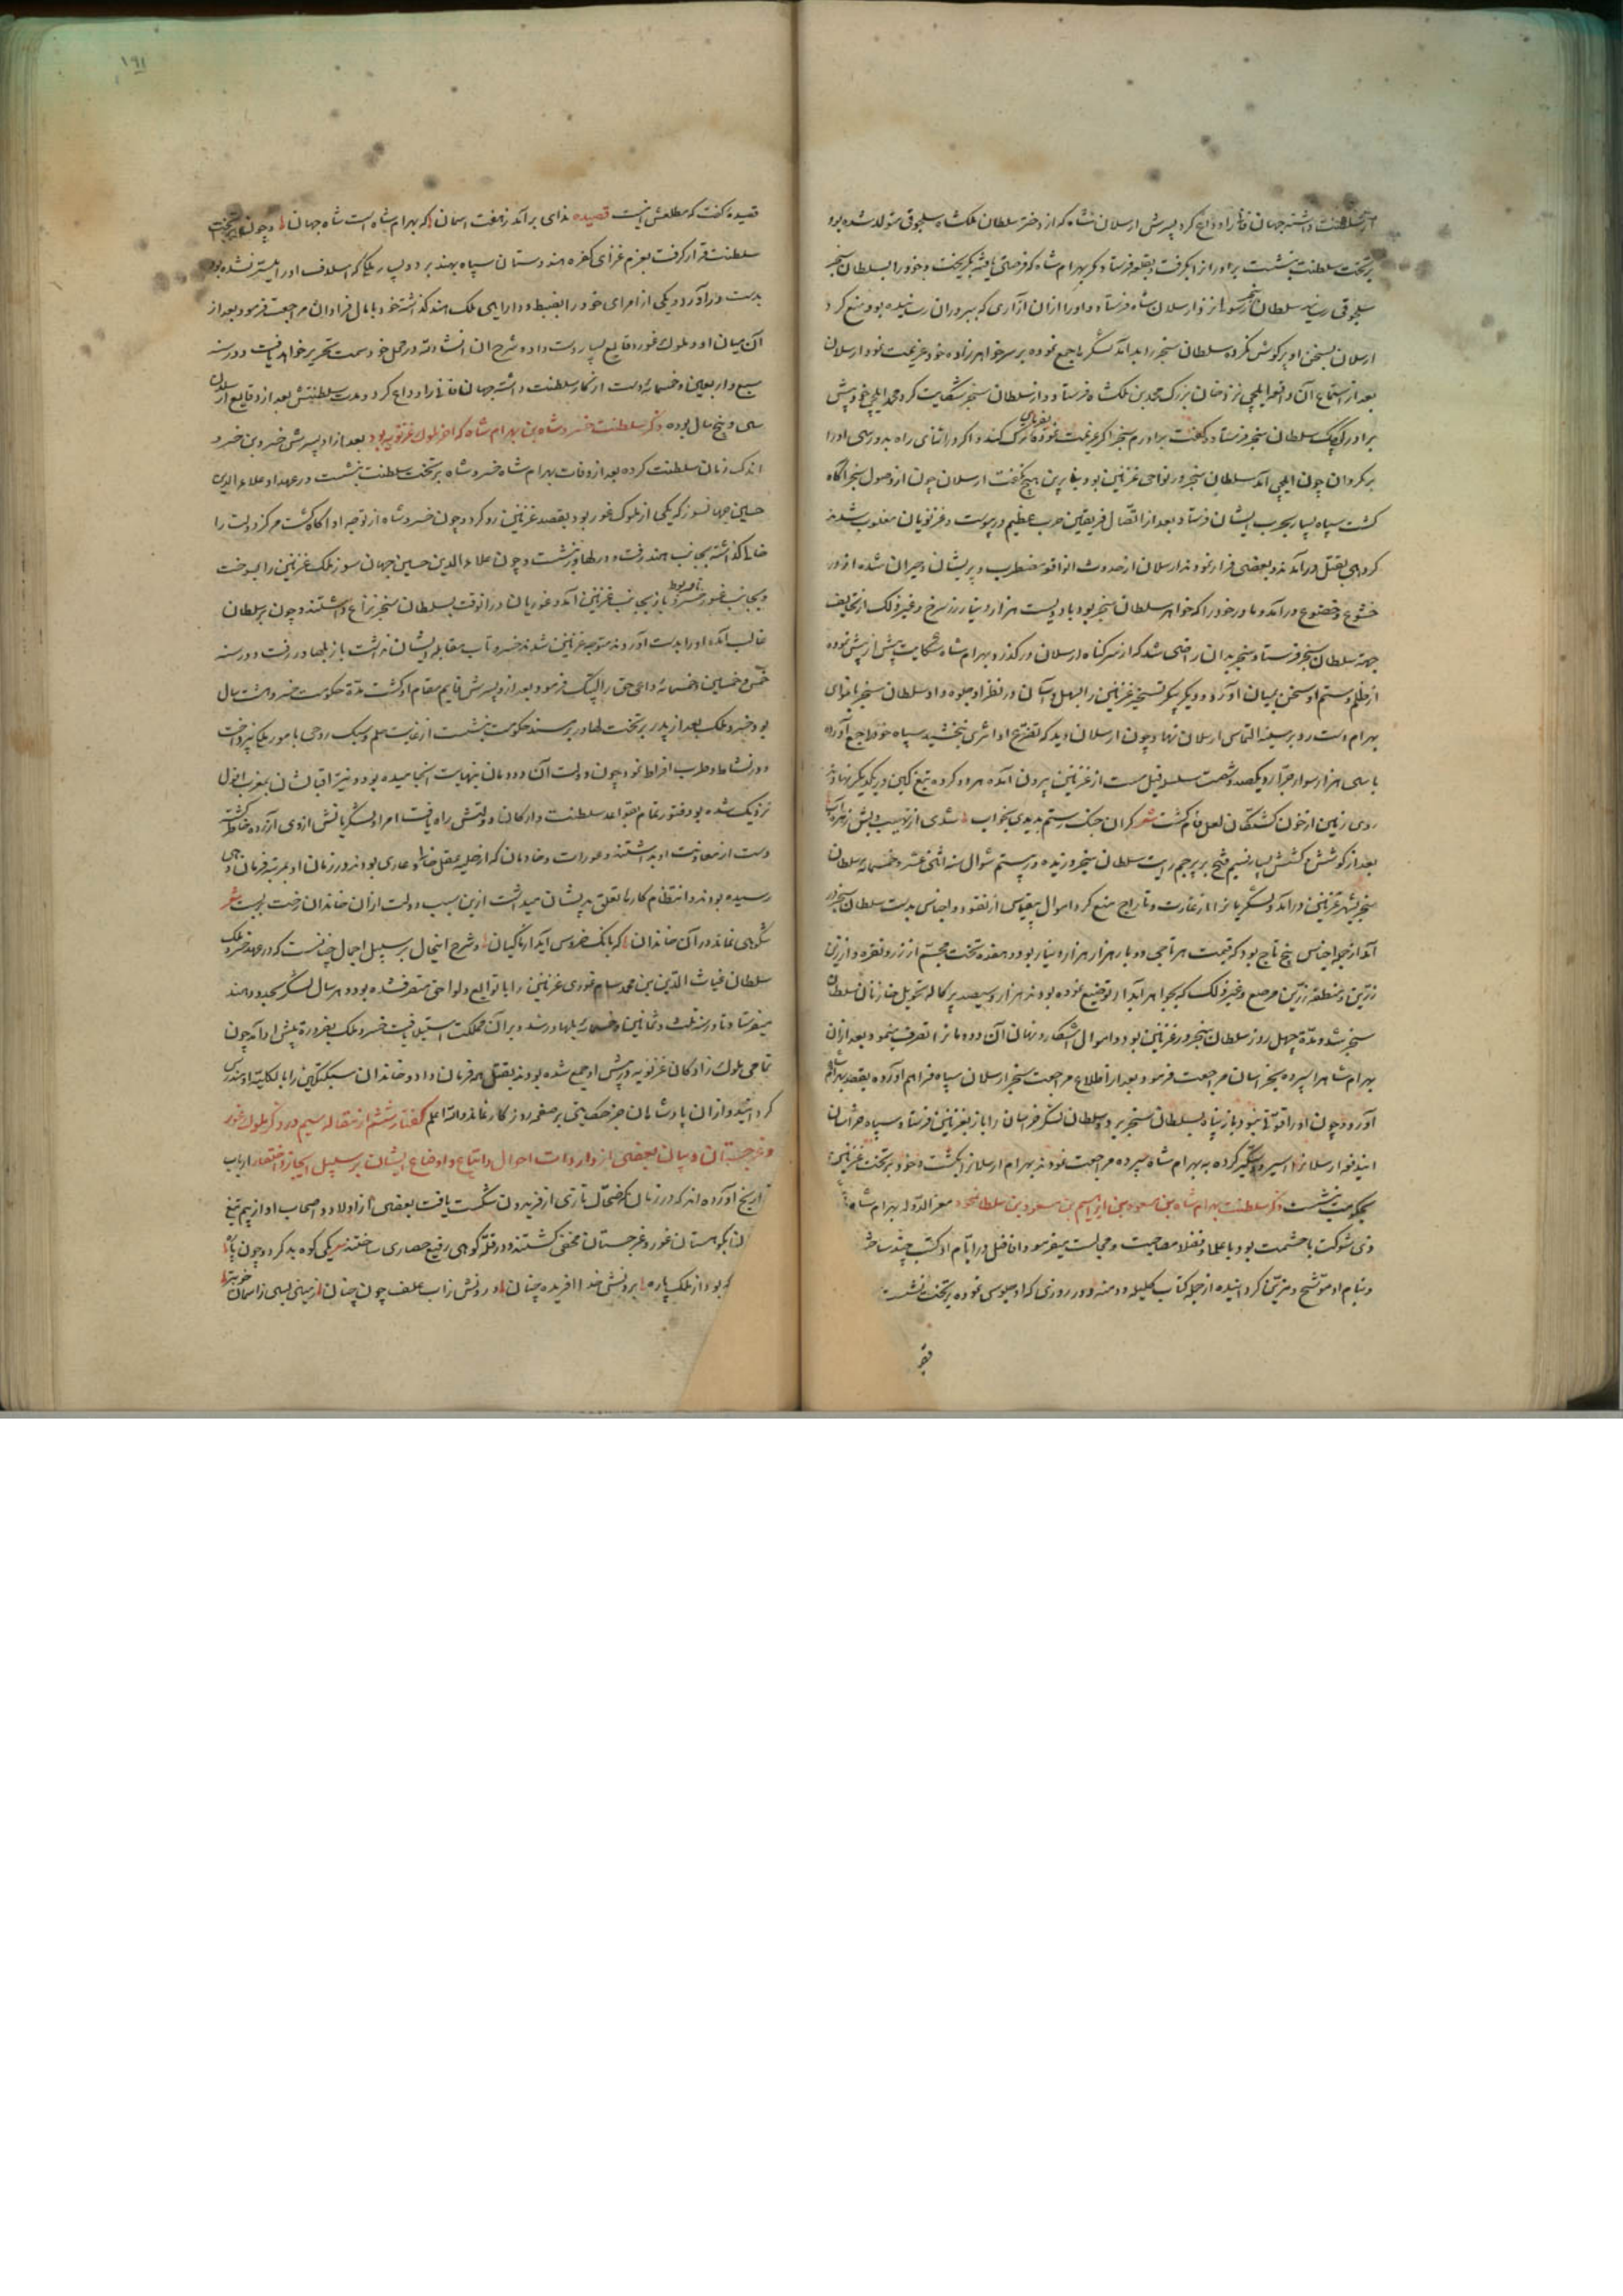 از سلطنت داشته جهان فانی را وداع کرد پسرش ارسلان شاه که از دختر سلطان ملکشاه سلجوقی متولد شده بود
بر تخت سلطنت بنشست برادرانرا بگرفت و بقلعه فرستاد مگر بهرام شاه که فرصتی یافته بگریخت و خود را بسلطان سنجر
سلجوقی رسانید سلطان سنجر رسولی نزد ارسلان شاه فرستاد و او را از آن آزاری که ببرادران رسانیده بود منع کرد
ارسلان بسخن او گوش نکرده سلطان سنجر را بد آمد لشگر را جمع نموده بر سر خواهرزاده خود عزیمت نمود ارسلان
بعد از استماع آن واقعه ایلچی نزد خان بزرگ محمد بن ملکشاه فرستاد و از سلطان سنجر شکایت کرد محمد ایلچی خود پیش
برادر کوچک سلطان سنجر فرستاد و گفت برادرم سنجر اگر عزیمت نموده ترک کند و اگر در اثنای راه بدو رسی او را
بر گردان چون ایلچی آمد سلطان سنجر در نواحی غزنین بود بنابرین هیچ نگفت ارسلان چون از وصول سنجر آگاه
گشت سپاه بسیار بحرب ایشان فرستاد بعد از اتصال فریقین حرب عظیم در پیوست و غزنویان مغلوب شدند
گروهی بقتل در آمدند و بعضی فرار نمودند ارسلان از حدوث آن واقعه مضطرب و پریشان و حیران شده از در
خشوع و خضوع در آمد و مادر خود را که خواهر سلطان سنجر بود با دویست هزار دینار زر سرخ و غیر ذلک از تحایف
جهة سلطان سنجر فرستاد و سنجر بدان راضی شد که از سر گناه ارسلان در گذرد بهرام شاه شکایت پیش از پیش نموده
از ظلم و ستم او سخن بمیان آورد و دیگر تسخیر غزنین را سهل و آسان در نظر او جلوه داد سلطان سنجر باغرای
بهرام دست رد بر سینه التماس ارسلان نهاد و چون ارسلان دید که تضرع او اثری نبخشید سپاه خود را جمع آورده
با سی هزار سوار جرار و یکصد و شصت سلسله فیل مست از غزنین بیرون آمده هر دو گروه تیغ کین در یکدیگر نهادند
روی زمین از خون کشتگان لعل فام گشت شعر گر آن جنگ رستم بدیدی بخواب شدی از نهیب دلیش زهره آب
بعد از کوشش و کشش بسیار نسیم فتح بر پرچم رایت سلطان سنجر وزیده در بیستم شوال سنه اثنی عشر و خمسمائه سلطان
سنجر بشهر غزنین در آمد و لشگریانرا از غارت و تاراج منع کرد اموال بیقیاس از نقود و اجناس بدست سلطان سنجر در
آمد از جمله اجناس پنج تاج بود که قیمت هر تاجی دو بار هزار هزار دینار بود و هفده تخت مجسم از زر و نقره و از زین
زرین و منطقه زرین مرصع و غیر ذلک که بجواهر آبدار توضیع نموده بودند هزار و سیصد پرکاله تحویل خازنان سلطان
سنجر شد و مدة چهل روز سلطان سنجر در غزنین بود و اموال آشکار و نهان آن دودمانرا تصرف نمود و بعد از آن
بهرام شاه را سپرده بخراسان مراجعت فرمود بعد از اطلاع مراجعت سنجر ارسلان سپاه فراهم آورده بقصد بهرام شاه
آورد و چون او را قوتی نبود باز پناه بسلطان سنجر برد و سلطان لشگر خراسان را باز بغزنین فرستاد و سپاه خراسان
این دفعه ارسلانرا اسیر و دستگیر کرده به بهرام شاه سپرده مراجعت نمودند بهرام ارسلانرا بکشت و خود بر تخت غزنین
بحکومت بنشست ذکر سلطنت بهرام شاه بن مسعود بن ابراهیم بن مسعود بن سلطان محمود معز الدوله بهرام شاه
ذی شوکت با حشمت بود با علما و فضلا مصاحبت و مجالست میفرمود افاضل در ایام او کتب چند ساخته
و بنام او موشح و مزین گردانیده از جمله کتاب کلیله و دمنه و در روزی که او جلوس نموده بر تخت نشست
قصیدۀ گفت که مطلعش اینست قصیده ندای بر آمد ز هفت آسمان که بهرام شاه است شاه جهان و چون بر تخت
سلطنت قرار گرفت بعزم غزای کفره هندوستان سپاه بهند برد و بسیار بلکها که اسلاف او را میسر نشده بود
بدست در آورد و یکی از امرای خود را بضبط و دارایی ملک هند گذاشته خود با مال فراوان مراجعت فرمود بعد از
آن میان او و ملوک غور وقایع بسیار دست داده شرح آن انشاءالله در محل خود سمت تحریر خواهد یافت و در سنه
سبع و اربعین و خمسمائه دست از کار سلطنت داشته جهان فانی را وداع کرد و مدت سلطنتش بعد از وقایع ارسلان
سی و پنج سال بوده ذکر سلطنت خسرو شاه بن بهرام شاه که آخر ملوک غزنویه بود بعد از او پسرش خسرو بن خسرو
اندک زمان سلطنت کرده بعد از وفات بهرام شاه خسرو شاه بر تخت سلطنت بنشست در عهد او علاء الدین
حسین جهانسوز که یکی از ملوک غور بود بقصد غزنین رو کرد و چون خسرو شاه از توجه او آگاه گشت مرکز دولت را
خالی گذاشته بجانب هند رفت و در لهاور نشست و چون علاء الدین حسین جهان سوز ملک غزنین را بسوخت
و بجانب غور خسرو باز بجانب غزنین آمد و غوریان در آنوقت بسلطان سنجر نزاع داشتند و چون بر سلطان
غالب آمده او را بدست آوردند متوجه غزنین شدند خسرو تاب مقابله ایشان نداشت باز بلهاور رفت و در سنه
خمس و خمسین و خمسمائه داعی حق را لبیک فرمود و بعد از او پسرش قایم مقام او گشت مدة حکومت خسرو هشت سال
بود خسرو ملک بعد از پدر بر تخت لهاور بر مسند حکومت بنشست از غایت حلم و سبک روحی با مور ملک نپرداخت
و در نشاط و طرب افراط نمود چون دولت آن دودمان بنهایت انجامیده بود و نیر اقبالشان بمغرب افول
نزدیک شده بود فتور تمام بقواعد سلطنت و ارکان دولتش راه یافت امرا و لشگریانش از وی آزرده خاطر گشته
دست از معاونت او بداشتند و عورات و خادمان که از حلیه عقل عاری بودند در زمان او بمرتبه فرمان دهی
رسیده بودند و انتظام کارها تعلق بدیشان میداشت ازین سبب دولت از آن خاندان رخت بربست شعر
شکوهی نماند در آن خاندان که بانگ خروس آید از ماکیان و شرح اینحال بر سبیل اجمال چنانست که در عهد خسرو ملک
سلطان غیاث الدین بن محمد سام غوری غزنین را با توابع و لواحق متصرف شده بود و هر سال لشگر بحدود هند
میفرستاد تا در سنه ثلث و ثمانین و خمسمائه بلهاور رسید و بر آن مملکت استیلا یافت خسرو ملک بضرورة پیش او آمد چون
تمامی ملوک زادگان غزنویه در پیش او جمع شده بودند بقتل همه فرمان داد و خاندان سبکتکین را بالکلیه مندرس
گردانید و از آن پادشاهان جز حکایتی بر صفحه روزگار نماند والله اعلم گفتار ششم از مقاله سیم در ذکر ملوک غور
و غرجستان و بیان بعضی از واردات احوال و اتباع و اوضاع ایشان بر سبیل ایجاز و اختصار ارباب
تاریخ آورده اند که در زمان که ضحاک تازی از فریدون شکست یافت بعضی از اولاد و اصحاب او از بیم تیغ
بکوهستان غور و غرجستان مخفی گشتند و در قله کوهی رفیع حصاری ساختند یکی کوه بد گرد و چون
که بود از فلک پاره برونش خدا آفریده چنان درونش ز آب علف چون جنان زمینی بسی ز آسمان خوبتر